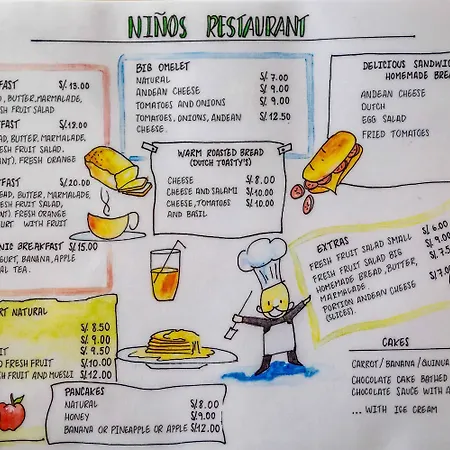 NIÑOS RESTAURANT
FAST S/.13.00
D, BUTTER, MARMALADE,
FRESH FRUIT SALAD
FAST S/.18.00
AD, BUTTER, MARMALADE,
FRESH FRUIT SALAD,
NT). FRESH ORANGE
FAST S/.20.00
EAD, BUTTER, MARMALADE,
FRESH FRUIT SALAD,
NT) FRESH ORANGE
URT WITH FRUIT
NIC BREAKFAST S/.15.00
URT, BANANA, APPLE
AL TEA.
RT NATURAL
S/. 8.50
S/. 9.00
IT S/. 9.50
D FRESH FRUIT S/.10.00
SH FRUIT AND MUESLI S/.12.00
BIB OMELET
NATURAL S/. 7.00
ANDEAN CHEESE S/. 9.00
TOMATOES AND ONIONS S/. 9.00
TOMATOES, ONIONS, ANDEAN S/. 12.50
CHEESE.
WARM ROASTED BREAD
(DUTCH TOASTY'S)
CHEESE S/. 8.00
CHEESE AND SALAMI S/. 10.00
CHEESE, TOMATOES S/. 10.00
AND BASIL
PANCAKES
NATURAL S/. 8.00
HONEY S/. 9.00
BANANA OR PINEAPPLE OR APPLE S/.12.00
DELICIOUS SANDWIC
HOMEMADE BREA
ANDEAN CHEESE
DUTCH
EGG SALAD
FRIED TOMATOES
EXTRAS
FRESH FRUIT SALAD SMALL S/. 6.00
FRESH FRUIT SALAD BIG S/. 9.00
HOMEMADE BREAD, BUTTER, S/. 7.5
MARMALADE.
PORTION ANDEAN CHEESE S/. 7.0
(SLICES).
CAKES
CARROT / BANANA / QUINUA
CHOCOLATE CAKE BATHED
CHOCOLATE SAUCE WITH A
... WITH ICE CREAM